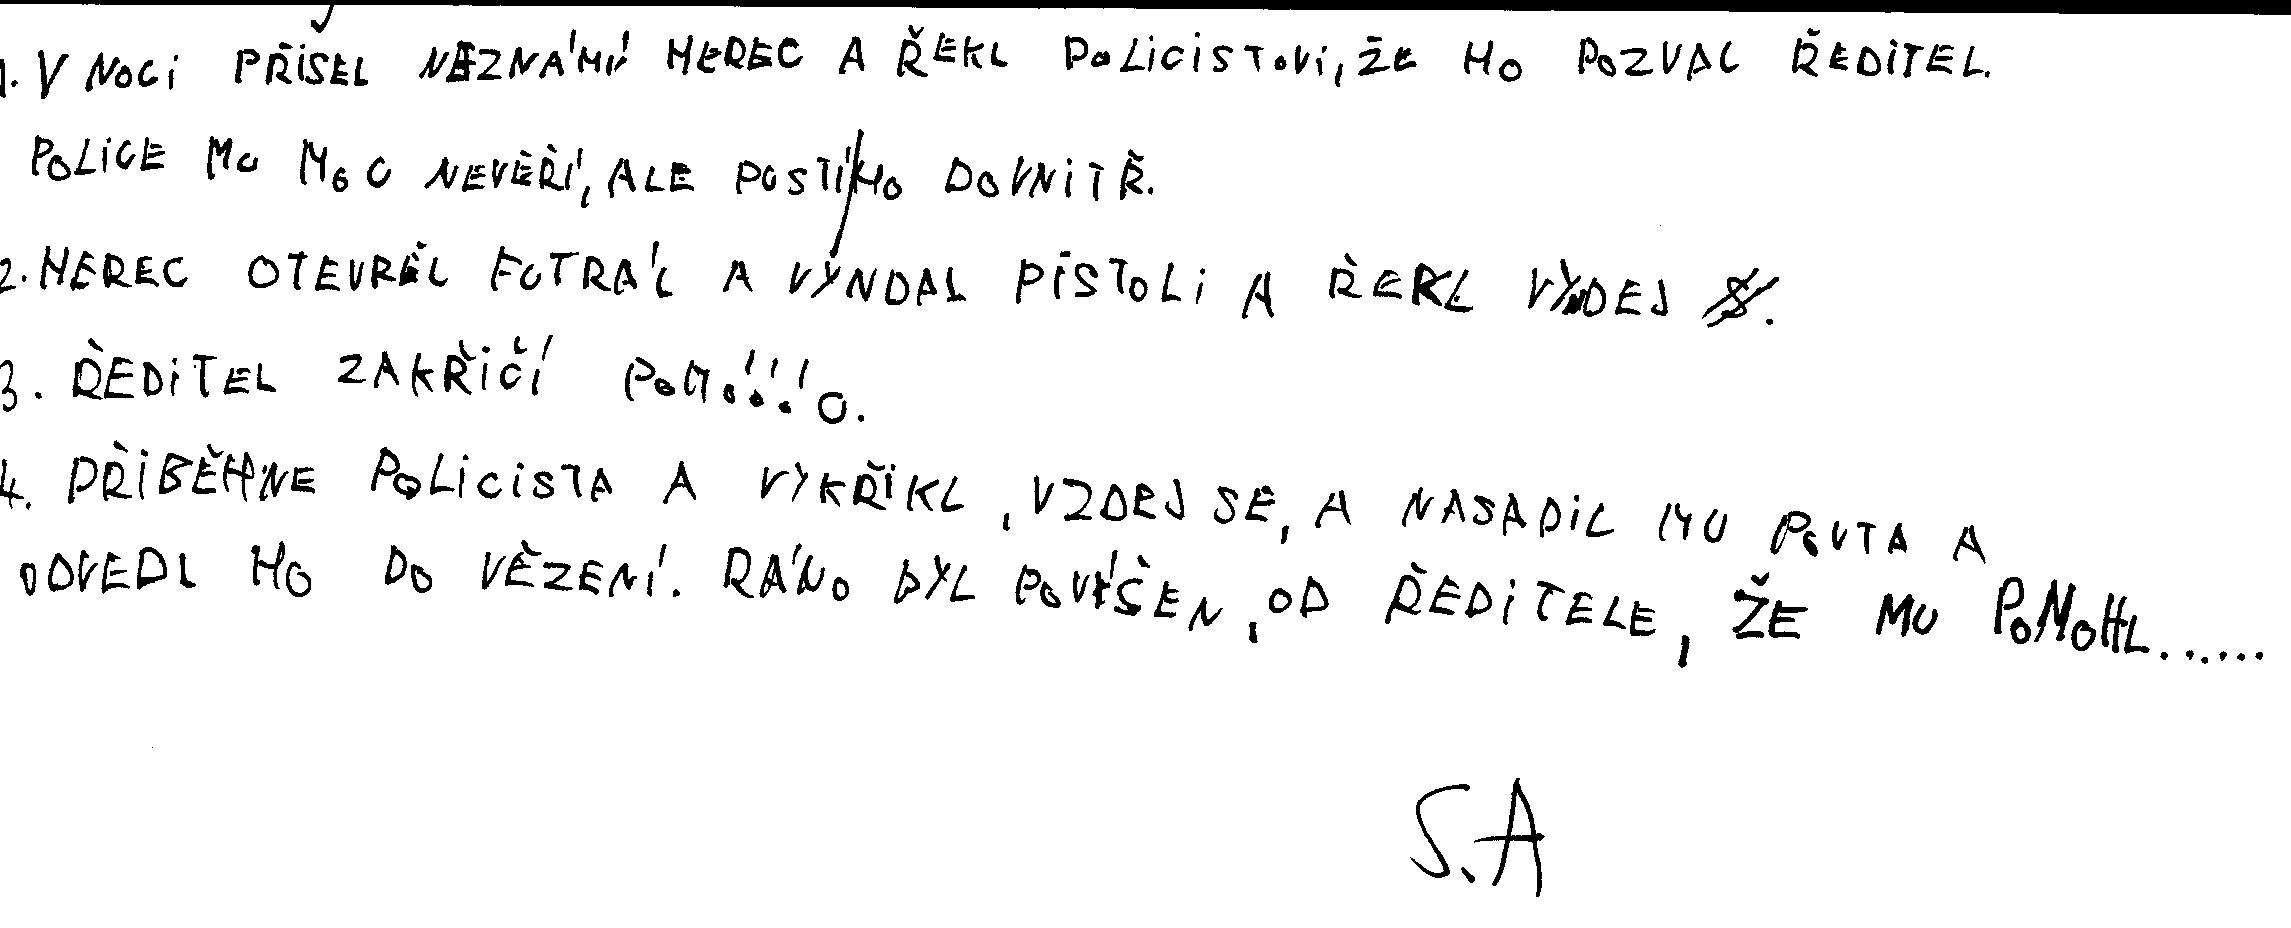 1. V NOCI PŘIŠEL NEZNÁMÍ HEREC A ŘEKL POLICISTOVI, ŽE HO POZVAL ŘEDITEL.
POLICE MU MOC NEVĚŘÍ, ALE POSTÍ HO DOVNITŘ.
2. HEREC OTEVŘEL FUTRÁL A VYNDAL PISTOLI A ŘEKL VYDEJ $.
3. ŘEDITEL ZAKŘIČÍ POM!!!!O.
4. PŘIBĚHNE POLICISTA A VYKŘIKL, VZDEJ SE, A NASADIL MU POUTA A
ODVEDL HO DO VĚZENÍ. RÁNO BYL POVÝŠEN, OD ŘEDITELE, ŽE MU POMOHL......
S.A